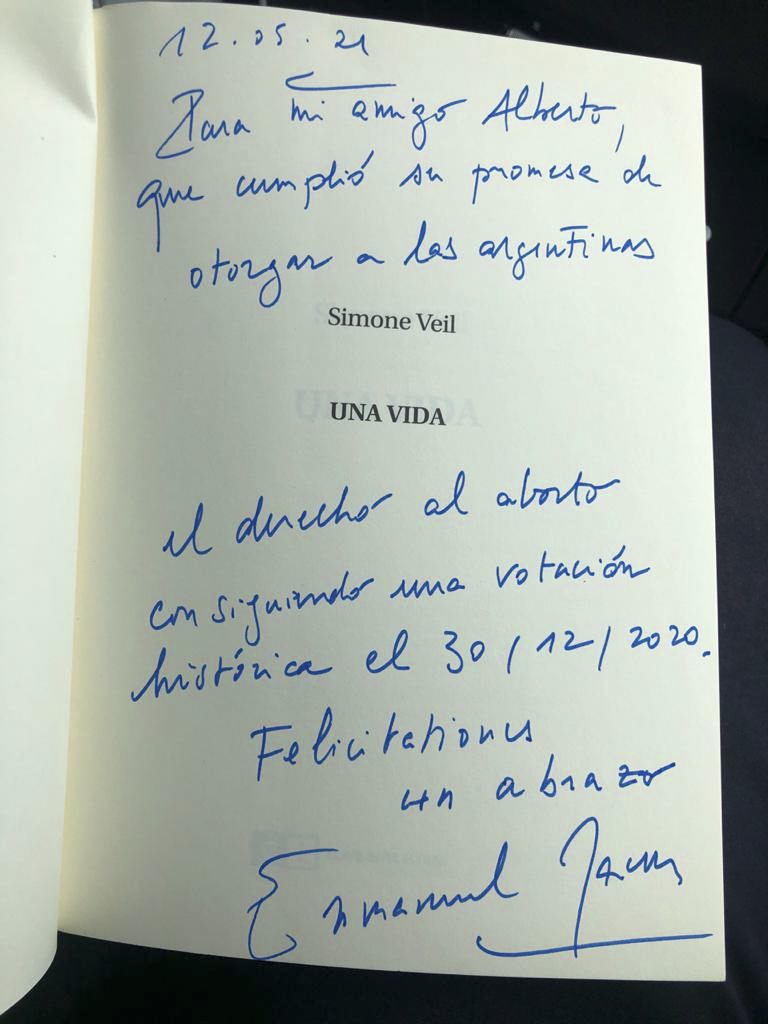 12.05.21
Para mi amigo Alberto,
que cumplió su promesa de
otorgar a las argentinas
Simone Veil
UNA VIDA
el derecho al aborto
consiguiendo una votación
histórica el 30/12/2020.
Felicitationes
un abrazo
Emmanuel